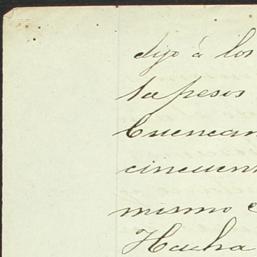 dijo á los
ta pesos
Cuencan
cincuent
mismo
Hacha